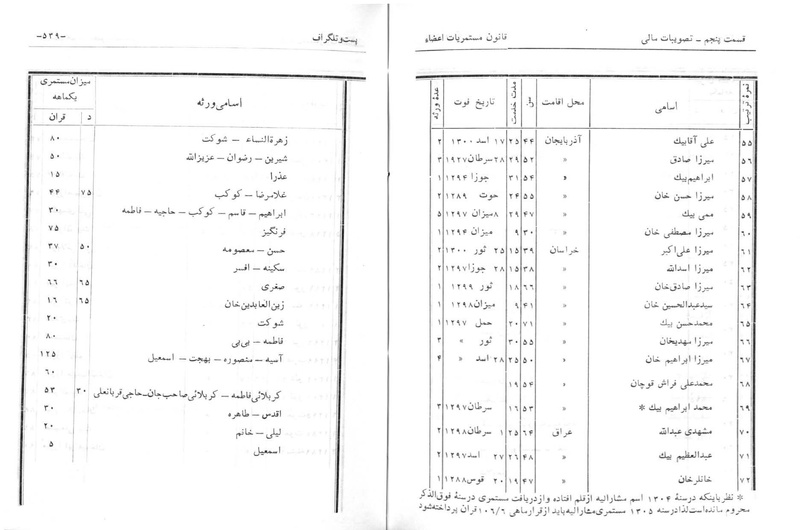 قسمت پنجم ــ تصویبات مالی
قانون مستمریات اعضاء
نمرهٔ ترتیب اسامی محل اقامت سن مدت خدمت تاریخ فوت عدهٔ ورثه
۵۵ علی آقابیك آذربایجان ۴۴ ۲۵ ۱۷ اسد ۱۳۰۰ ۲
۵۶ میرزا صادق » ۵۲ ۲۹ ۲۸ سرطان ۱۹۲۷ ۳
۵۷ ابراهیم‌بیك » ۵۴ ۳۱ جوزا ۱۲۹۴ ۱
۵۸ میرزا حسن خان » ۵۵ ۲۴ حوت ۱۲۸۹ ۲
۵۹ ممی بیك » ۴۷ ۲۹ ۸ میزان ۱۲۹۷ ۵
۶۰ میرزا مصطفی خان » ۳۰ ۹ میزان ۱۲۹۴ ۱
۶۱ میرزا علی‌اکبر خراسان ۳۹ ۱۵ ۲۵ ثور ۱۳۰۰ ۲
۶۲ میرزا اسدالله » ۳۸ ۱۵ ۲۸ جوزا ۱۲۹۷ ۲
۶۳ میرزا صادق‌خان » ۶۶ ۱۸ ثور ۱۲۹۹ ۱
۶۴ سیدعبدالحسین خان » ۴۱ ۹ میزان ۱۲۹۸ ۱
۶۵ محمدحسن بیك » ۷۱ ۲۰ حمل ۱۲۹۷ ۱
۶۶ میرزا مهدیخان » ۵۵ ۳۰ ثور » ۲
۶۷ میرزا ابراهیم خان » ۵۰ ۲۵ ۲۸ اسد » ۴
۶۸ محمدعلی فراش قوچان » ۵۴ ۱۹
۶۹ محمد ابراهیم بیك * » ۵۳ ۱۶ سرطان ۱۲۹۷ ۳
۷۰ مشهدی عبدالله عراق ۶۴ ۲۵ ۱ سرطان ۱۲۹۸ ۲
۷۱ عبدالعظیم بیك » ۴۸ ۲۶ ۲۷ اسد ۱۲۹۷ ۲
۷۲ خانلرخان » ۴۷ ۱۹ ۲۰ قوس ۱۲۸۸ ۱
* نظر باینکه درسنهٔ ۱۳۰۴ اسم مشارالیه ازقلم افتاده و ازدریافت مستمری درسنهٔ فوق‌الذکر
محروم مانده‌است لذا درسنه ۱۳۰۵ مستمری مشارالیه باید ازقرار ماهی ۱۰۶/۶ قران پرداخته‌شود
پست و تلگراف
ــ۵۳۹ــ
اسامی ورثه میزان مستمری یکماهه
د قران
زهرةالنساء ــ شوکت ۸۰
شیرین ــ رضوان ــ عزیزالله ۵۰
عذرا ۱۵
غلامرضا ــ کوکب ۷۵ ۴۴
ابراهیم ــ قاسم ــ کوکب ــ حاجیه ــ فاطمه ۳۰
فرنگیز ۷۵
حسن ــ معصومه ۵۰ ۳۷
سکینه ــ افسر ۳۰
صغری ۶۵ ۶۶
زین‌العابدین‌خان ۶۵ ۱۶
شوکت ۲۰
فاطمه ــ بی‌بی ۸۰
آسیه ــ منصوره ــ بهجت ــ اسمعیل ۱۲۵
۶۰
کربلائی‌فاطمه ــ کربلائی‌صاحب‌جان ــ حاجی‌قربانعلی ۳۰ ۵۳
اقدس ــ طاهره ۳۰
لیلی ــ خانم ۲۰
اسمعیل ۵